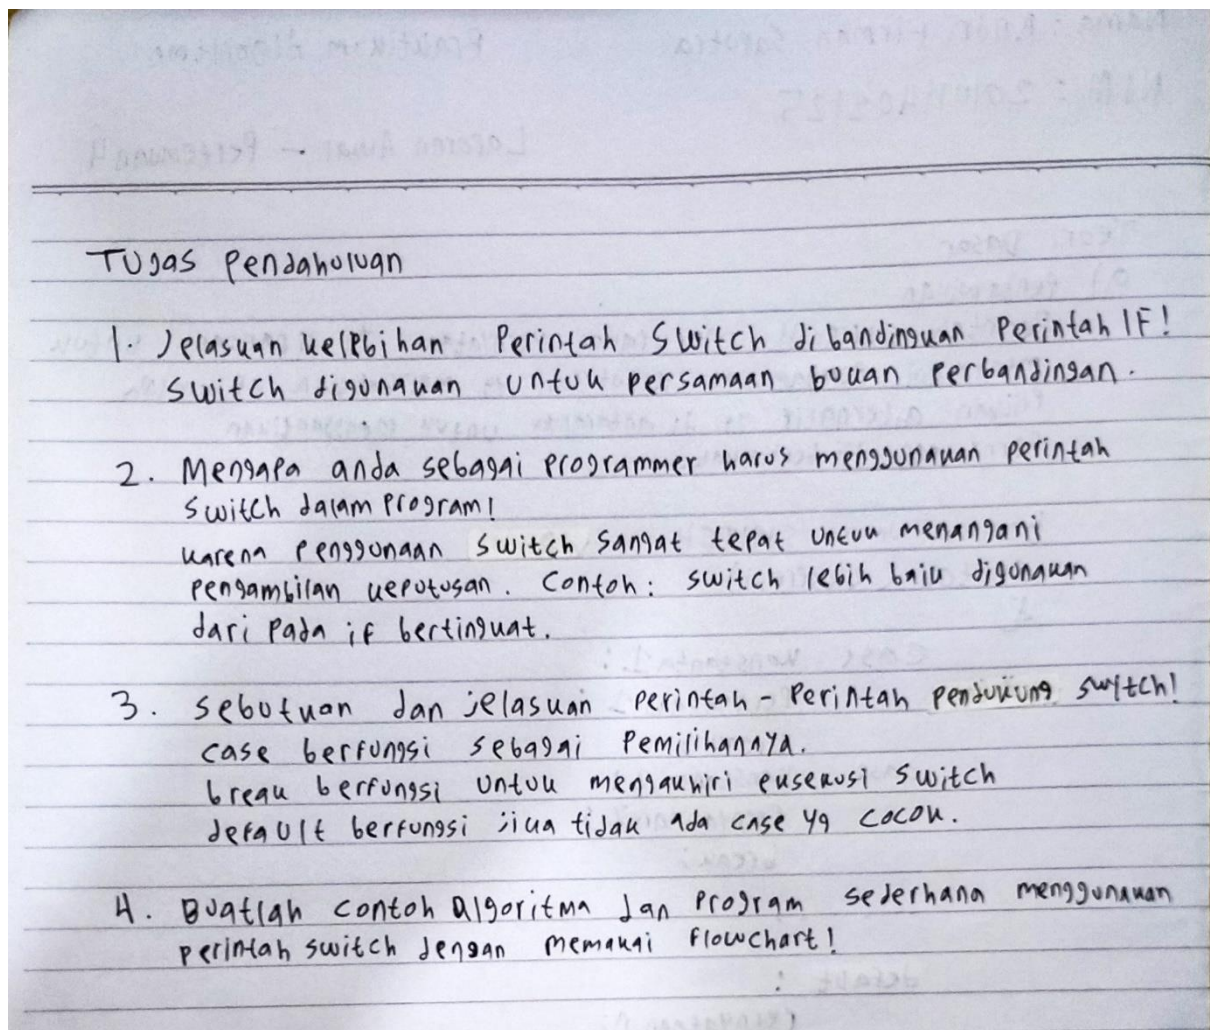 Tugas Pendahuluan
1. Jelaskan kelebihan Perintah Switch dibandingkan Perintah IF!
Switch digunakan untuk persamaan bukan Perbandingan.
2. Mengapa anda sebagai programmer harus menggunakan perintah
Switch dalam Program!
karena Penggunaan switch sangat tepat untuk menangani
pengambilan keputusan. Contoh: switch lebih baik digunakan
dari Pada if bertingkat.
3. Sebutkan dan jelaskan perintah - Perintah pendukung switch!
case berfungsi sebagai Pemilihannya.
break berfungsi untuk mengakhiri eksekusi switch
default berfungsi jika tidak ada case yg cocok.
4. Buatlah contoh algoritma dan Program sederhana menggunakan
perintah switch dengan memakai flowchart!